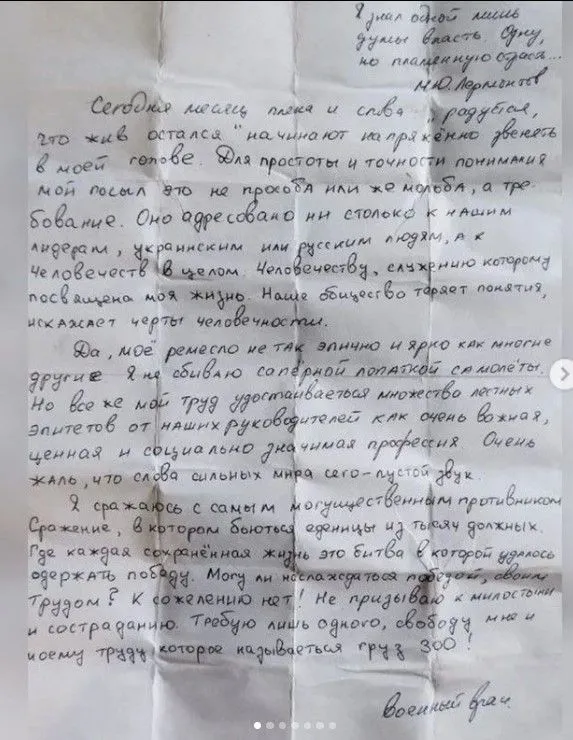 Я знал одной лишь
думы власть. Одну,
но пламенную страсть...
М.Ю. Лермонтов
Сегодня месяц плена и слова "радуйся,
что жив остался" начинают напряжённо звенеть
в моей голове. Для простоты и точности понимания
мой посыл это не прозьба или же мольба, а тре-
бование. Оно адресовано ни столько к нашим
лидерам, украинским или русским людям, а к
человечеств в целом. Человечеству, служению которому
посвящена моя жизнь. Наше общество теряет понятия,
искажает черты человечности.
Да, моё ремесло не так эпично и ярко как многие
другие Я не сбиваю сапёрной лопаткой самолёты.
Но все же мой труд удостаиваеться множества лестных
эпитетов от наших руководителей как очень важная,
ценная и социально значимая профессия. Очень
жаль, что слова сильных мира сего - пустой звук.
Я сражаюсь с самым могущественным противником
Сражение, в котором бьються еденицы из тысяч должных.
Где каждая сохранённая жизнь это битва в которой удалось
одержать победу. Могу ли наслаждаться победой, своим
трудом? К сожелению нет! Не призываю к милостыни
и состраданию. Требую лишь одного, свободу мне и
моему труду которое называеться груз 300!
Военный врач.